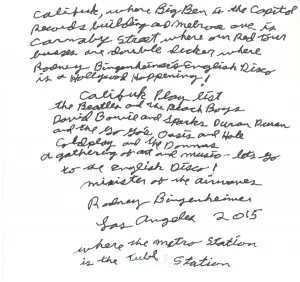 Califuk, where Big Ben is the Capitol
Records building and Melrose ave is
Carnaby Street, where our Red Tour
buses are double decker, where
Rodney Bingenheimer's English Disco
is a Hollywood Happening!
Califuk Play list
the Beatles and the Beach Boys
David Bowie and Sparks Duran Duran
and the Go Go's Oasis and Hole
Coldplay and the Donnas
a gathering of art and music - lets go
to the English Disco!
minister of the airwaves
Rodney Bingenheimer
Los Angeles 2015
where the metro Station
is the Tube Station